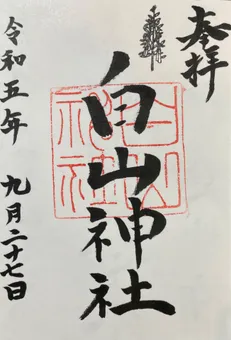 奉拝
白山神社
白山神社
令和五年 九月二十七日